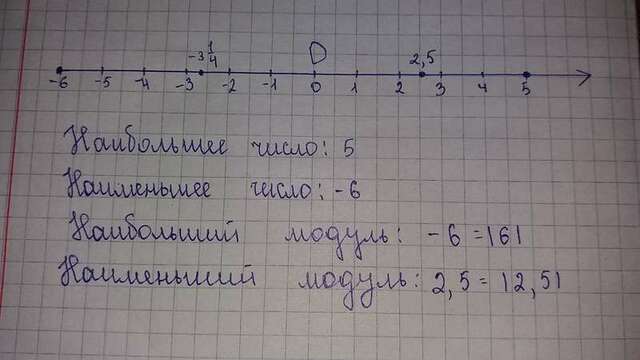 D
-3 1/4 2,5
-6 -5 -4 -3 -2 -1 0 1 2 3 4 5
Наибольшее число: 5
Наименьшее число: -6
Наибольший модуль: -6 =|6|
Наименьший модуль: 2,5 = |2,5|